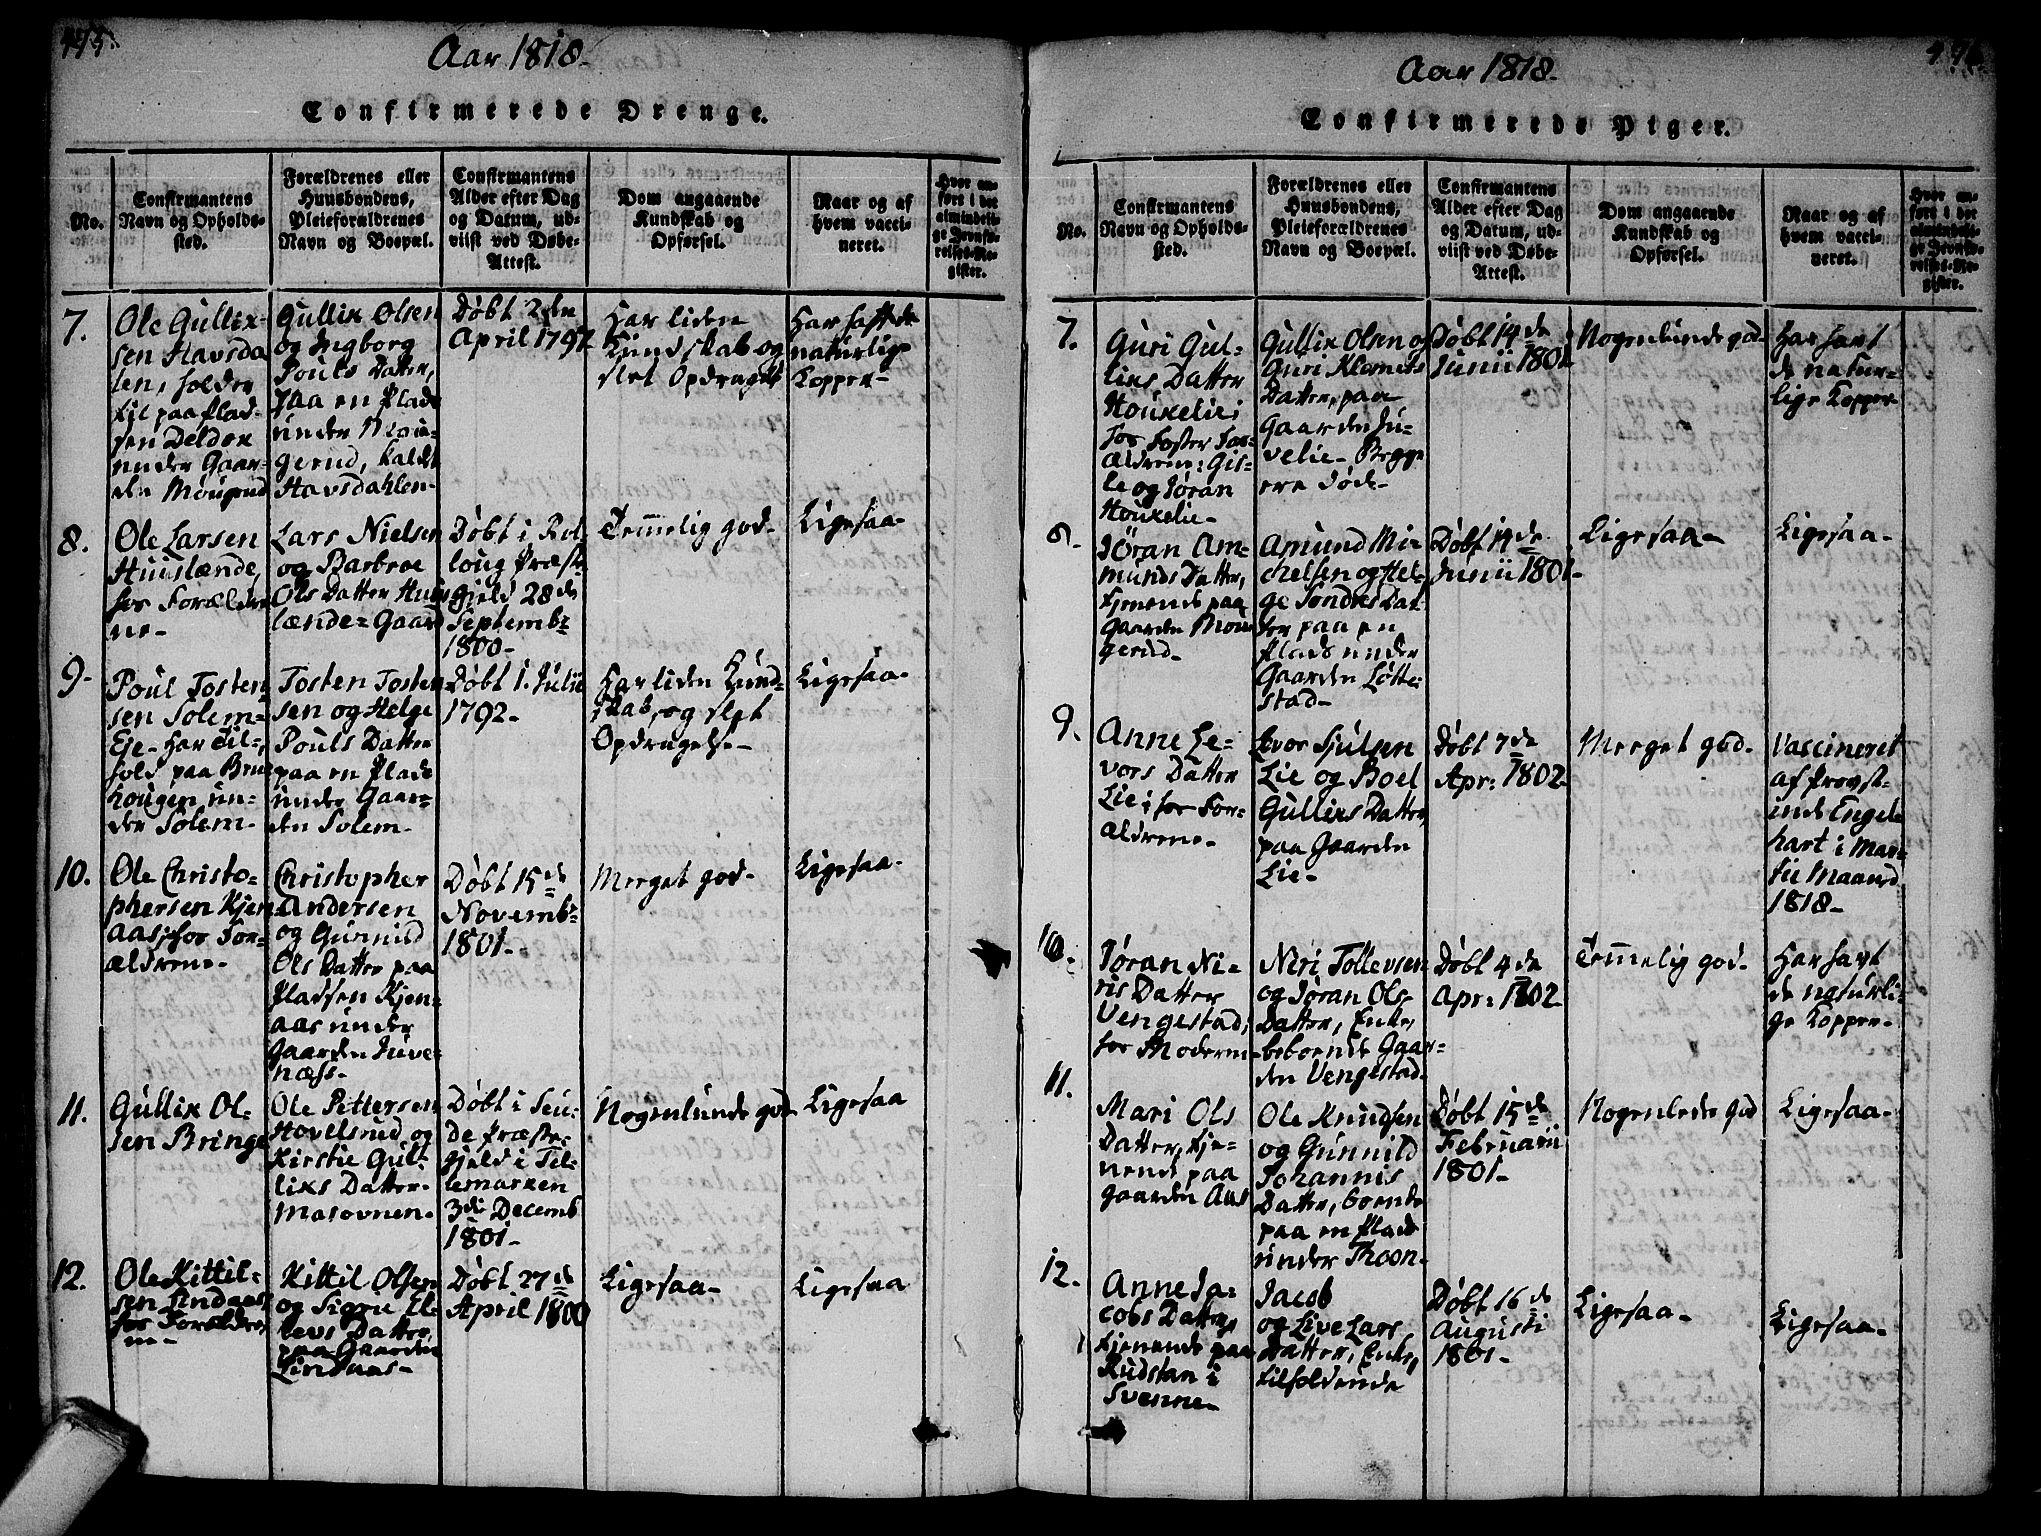 475.
Aar 1818.
Confirmerede Drenge.
No.
Confirmantens
Navn og Opholds-
sted.
Forældrenes eller
Huusbondens,
Pleieforældrenes
Navn og Boepæl.
Confirmantens
Alder efter Dag
og Datum, ud-
viist ved Døbe-
Attest.
Dom angaaende
Kundskab og
Opførsel.
Naar og af
hvem vacci-
neret.
Hvor an-
ført i det
almindeli-
ge Jevnfø-
relses-Re-
gister.
7.
Ole Gullik-
sen Havsda
len, holder
til paa Plad-
sen Delder
under Gaar-
den Mougerud
Gullik Olsen
og Ingborg
Pouls Datter,
paa en Plads
under Mou-
gerud, kaldt
Havsdahlen-
Døbt 2den
April 1797
Har liden
Kundskab og
slet Opdragelse
Har haft de
naturlige
Kopper-
8.
Ole Larsen
Huuslænde,
hos Foræld
ne-
Lars Nielsen
og Barbroe
Ols Datter Huus
lænde-Gaard
Døbt i Rol
loug Præste
gjeld 28de
Septembr
1800-
Temmelig god-
Ligesaa-
9-
Poul Tosten-
sen Solem-
Eje- har Til-
hold paa Brue
hougen un-
der Solem-
Tosten Tosten
sen og Helge
Pouls Datter
paa en Plads
under Gaar-
den Solem-
Døbt 1. Julii
1792-
Har liden Kund-
skab, og slet
Opdragelse-
Ligesaa-
10.
Ole Christo-
phersen Kjen-
aas, hos For-
ældrene-
Christopher
Andersen
og Gunnild
Ols Datter paa
Pladsen Kjen-
aas under
Gaarden Juve-
næss-
Døbt 15de
Novembr
1801-
Meeget god-
Ligesaa-
11.
Gullik Ol-
sen Bringe
Ole Pettersen
Hovelsrud og
Kirstie Gul-
liks Datter-
Masovnen-
Døbt i Seu-
de Præste-
gjeld i Tel-
lemarken
3die Decemb
1801-
Nogenlunde god
Ligesaa
12.
Ole Kittil-
sen Lindaas
hos Forældre
ne-
Kittil Olsen
og Sigrie El-
levs Datter,
paa Gaarden
Lindaas-
Døbt 27de
April 1800
Ligesaa-
Ligesaa
476.
Aar 1818-
Confirmerede Piger.
No.
Confirmantens
Navn og Opholds-
sted.
Forældrenes eller
Huusbondens,
Pleieforældrenes
Navn og Boepæl.
Confirmantens
Alder efter Dag
og Datum, ud-
viist ved Døbe-
Attest.
Dom angaaende
Kundskab og
Opførsel.
Naar og af
hvem vacci-
neret.
Hvor an-
ført i det
almindeli-
ge Jevnfø-
relses-Re-
gister.
7.
Guri Gul-
liks Datter
Houkelie;
hos Foster For-
ældrene: Gis-
le og Jøran
Houkelie-
Gullik Olsen og
Guri Klemets
Datter, paa
Gaarden Ju-
velie- Begge
ere døde-
Døbt 14de
Junii 1801
Nogenlunde god-
Har havt
de natur-
lige Kopper
8-
Jøran Am-
munds Datter,
tjenende paa
Gaarden Mou
gerud-
Amund Mi-
chelsen og Hel-
ge Tondes Dat
ter paa en
Plads under
Gaarden Løtte-
stad-
Døbt 14de
Junii 1801-
Ligesaa-
Ligesaa-
9.
Anne Le-
vors Datter
Lie; hos For-
ældrene-
Levor Sjulsen
Lie og Boel
Gulliks Datter,
paa Gaarden
Lie-
Døbt 7de
Apr: 1802
Meeget god-
Vaccineret
af Provst-
inde Engel-
hart i Mar-
tii Maaned
1818-
10.
Jøran Ni-
ris Datter
Vengestad;
hos Moderen
Niri Tollevsen
og Jøran Ols
Datter, Enke,
beboende Gaar-
den Vengestad-
Døbt 4de
Apr: 1802
Temmelig god-
Har havt
de naturli-
ge Kopper-
11.
Mari Ols
Datter, tje-
nende paa
Gaarden Aas
Ole Knudsen
og Gunnild
Johannis
Datter, boende
paa en Plads
under Thoon-
Døbt 15de
Februarii
1801-
Nogenlede god
Ligesaa-
12.
Anne Ja-
cobs Datter
tjenende paa
Rudstan i
Svenne-
Jacob
og Live Lars
Datter, Enke,
tilholdende
Døbt 16de
Augusti
1801-
Ligesaa-
Ligesaa-